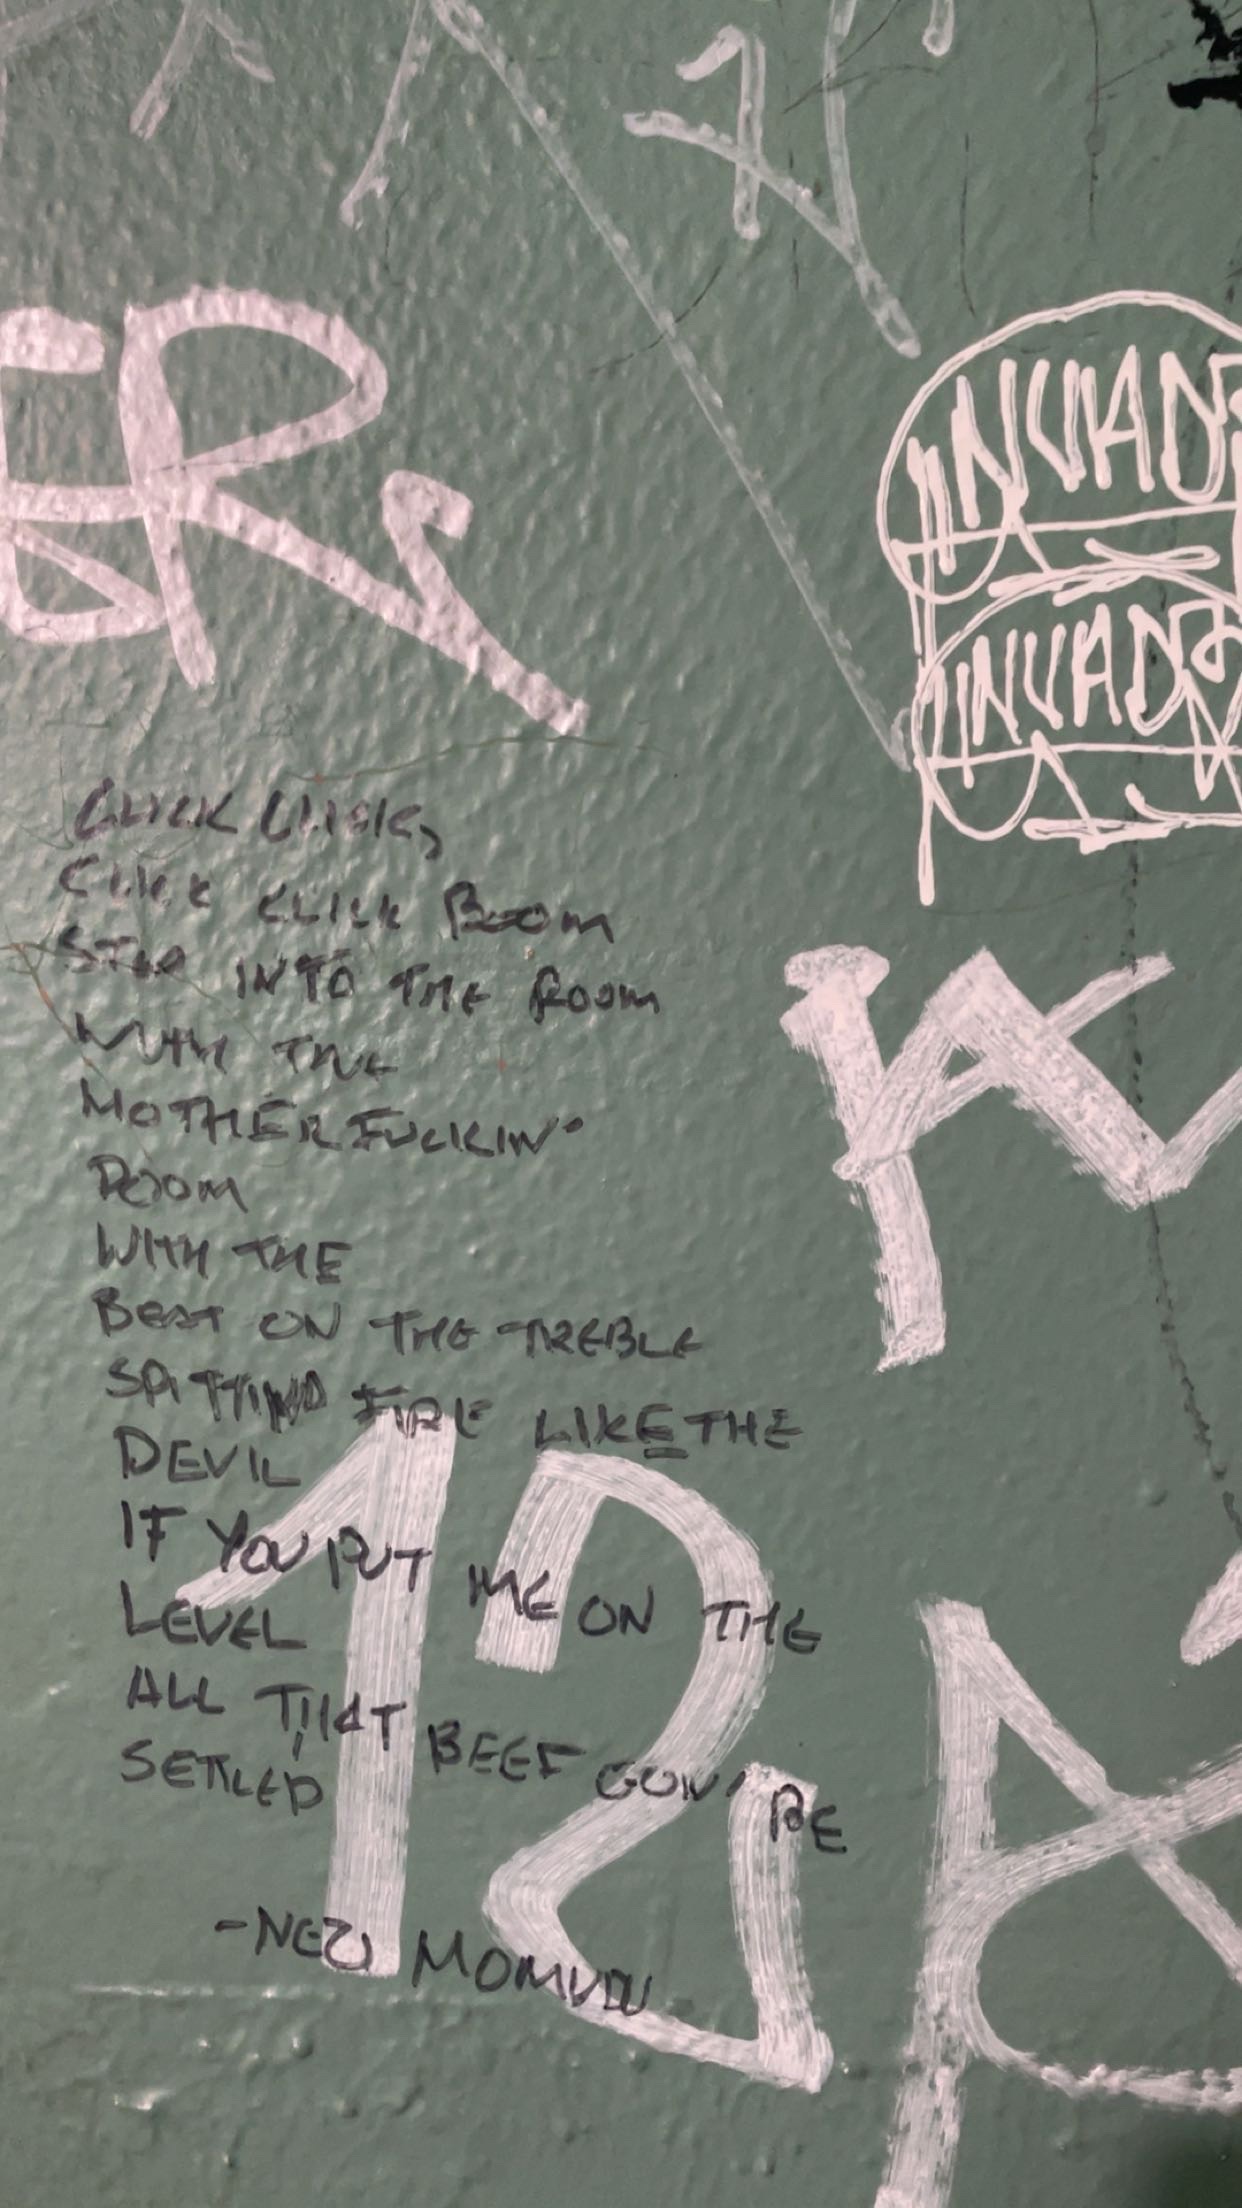 ER
INVAD
INVAD
CLICK CLICK,
CLICK CLICK BOOM
STEP INTO THE ROOM
WITH THE
MOTHERFUCKIN'
ROOM
WITH THE
BEAT ON THE TREBLE
SPITTING FIRE LIKE THE
DEVIL
IF YOU PUT ME ON THE
LEVEL
ALL THAT BEEF GON' BE
SETTLED
-NEZU MOMUDU
12